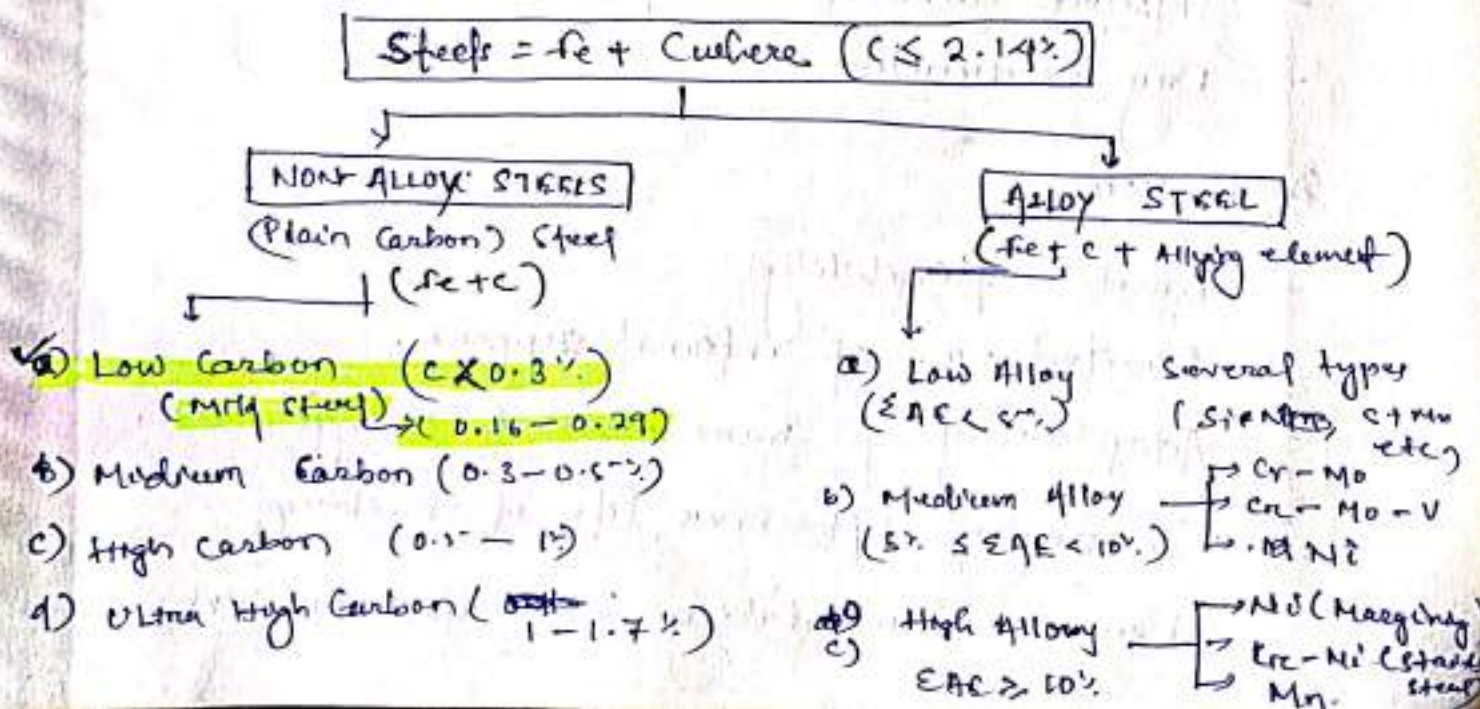 Steels = Fe + C where (C ≤ 2.14%)
NON ALLOY STEELS
(Plain Carbon) Steel
(Fe+C)
a) Low Carbon (C < 0.3%)
(Mild Steel) → (0.16 – 0.29)
b) Medium Carbon (0.3 – 0.5%)
c) High Carbon (0.5 – 1%)
d) Ultra High Carbon ( 1 – 1.7%)
ALLOY STEEL
(Fe + C + Allying element)
a) Low Alloy Several types
(ΣAE < 5%) C + Mo
etc)
b) Medium Alloy → Cr – Mo
→ Cr – Mo – V
(5% ≤ ΣAE < 10%) → Ni
c) High Alloy → Ni (Maraging)
→ Cr – Ni (Stainless steel)
ΣAE ≥ 10% → Mn.